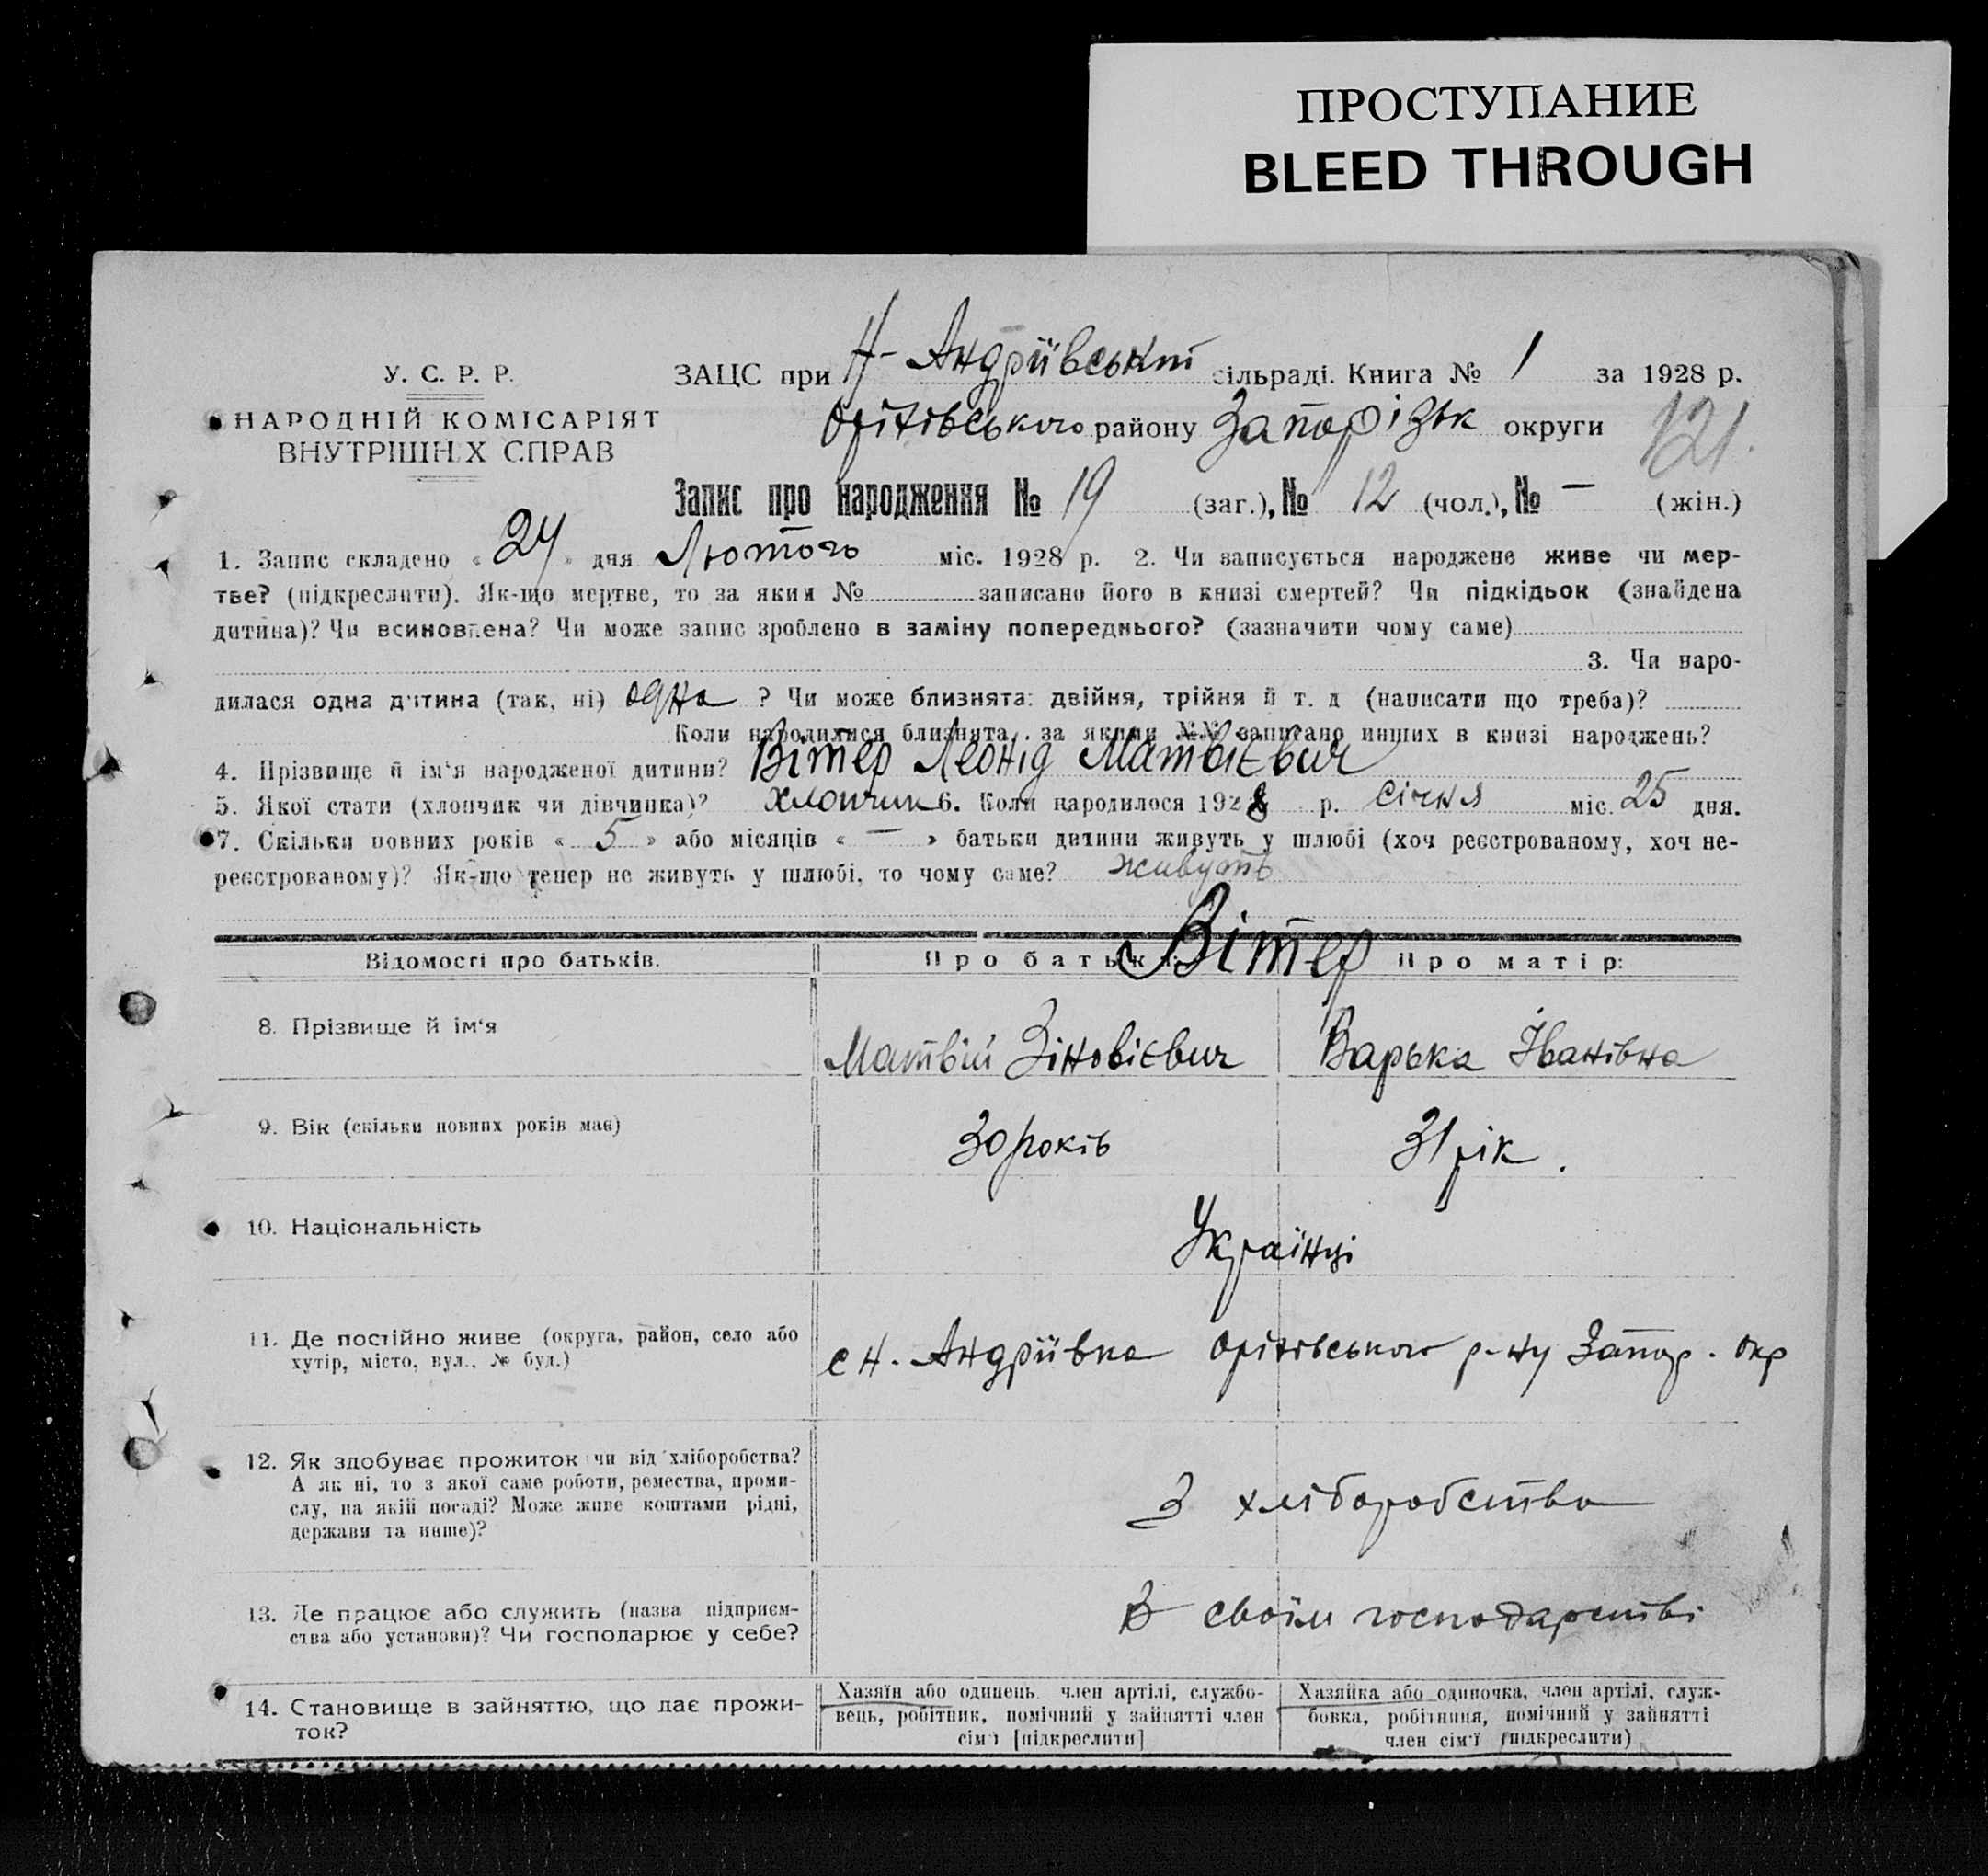 ПРОСТУПАНИЕ
BLEED THROUGH
У. С. Р. Р.
НАРОДНІЙ КОМІСАРІЯТ
ВНУТРІШНІХ СПРАВ
ЗАЦС при Н-Андріївській сільраді. Книга № 1 за 1928 р.
Оріхівського району Запорізьк округи
121.
Запис про народження № 19 (заг.), № 12 (чол.), № — (жін.)
1. Запис складено « 24 » дня Лютого міс. 1928 р. 2. Чи записується народжене живе чи мер-
тве? (підкреслити). Як-що мертве, то за яким № записано його в книзі смертей? Чи підкідьок (знайдена
дитина)? Чи всиновлена? Чи може запис зроблено в заміну попереднього? (зазначити чому саме)
3. Чи наро-
дилася одна дитина (так, ні) одна ? Чи може близнята: двійня, трійня й т. д (написати що треба)?
Коли народилися близнята, за якими №№ записано инших в книзі народжень?
4. Прізвище й ім'я народженої дитини? Вітер Леонід Матвієвич
5. Якої стати (хлопчик чи дівчинка)? хлопчик 6. Коли народилося 1928 р. січня міс. 25 дня.
7. Скільки повних років « 5 » або місяців « — » батьки дитини живуть у шлюбі (хоч реєстрованому, хоч не-
реєстрованому)? Як-що тепер не живуть у шлюбі, то чому саме? живуть
Відомості про батьків. Про батька: Вітер Про матір:
8. Прізвище й ім'я Матвій Зіновієвич Варька Іванівна
9. Вік (скільки повних років має) 30 років 31 рік.
10. Національність Українці
11. Де постійно живе (округа, район, село або
хутір, місто, вул., № буд.) с Н. Андріївка Оріхівського р-ну Запор. Окр
12. Як здобуває прожиток чи від хліборобства?
А як ні, то з якої саме роботи, ремества, проми-
слу, на якій посаді? Може живе коштами рідні,
держави та инше)? З хліборобства
13. Де працює або служить (назва підприєм-
ства або установи)? Чи господарює у себе? В своїм господарстві
14. Становище в зайняттю, що дає прожи-
ток?
Хазяїн або одинець член артілі, службо-
вець, робітник, помічний у зайнятті член
сім'ї [підкреслити]
Хазяйка або одиночка, член артілі, служ-
бовка, робітниця, помічний у зайнятті
член сім'ї (підкреслити)